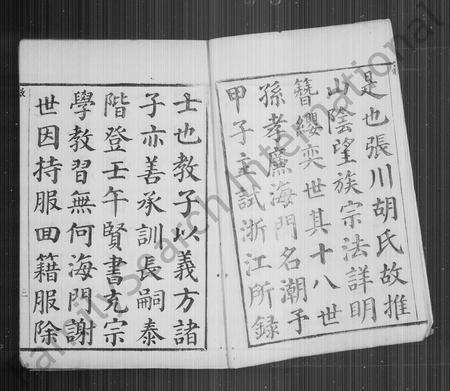 是也張川胡氏故推
山陰望族宗法詳明
簪纓奕世其十八世
孫孝廉海門名潮子
甲子主試浙江所錄
士也教子以義方諸
子亦善承訓長嗣泰
階登壬午賢書充宗
學教習無何海門謝
世因持服回籍服除
FamilySearch International